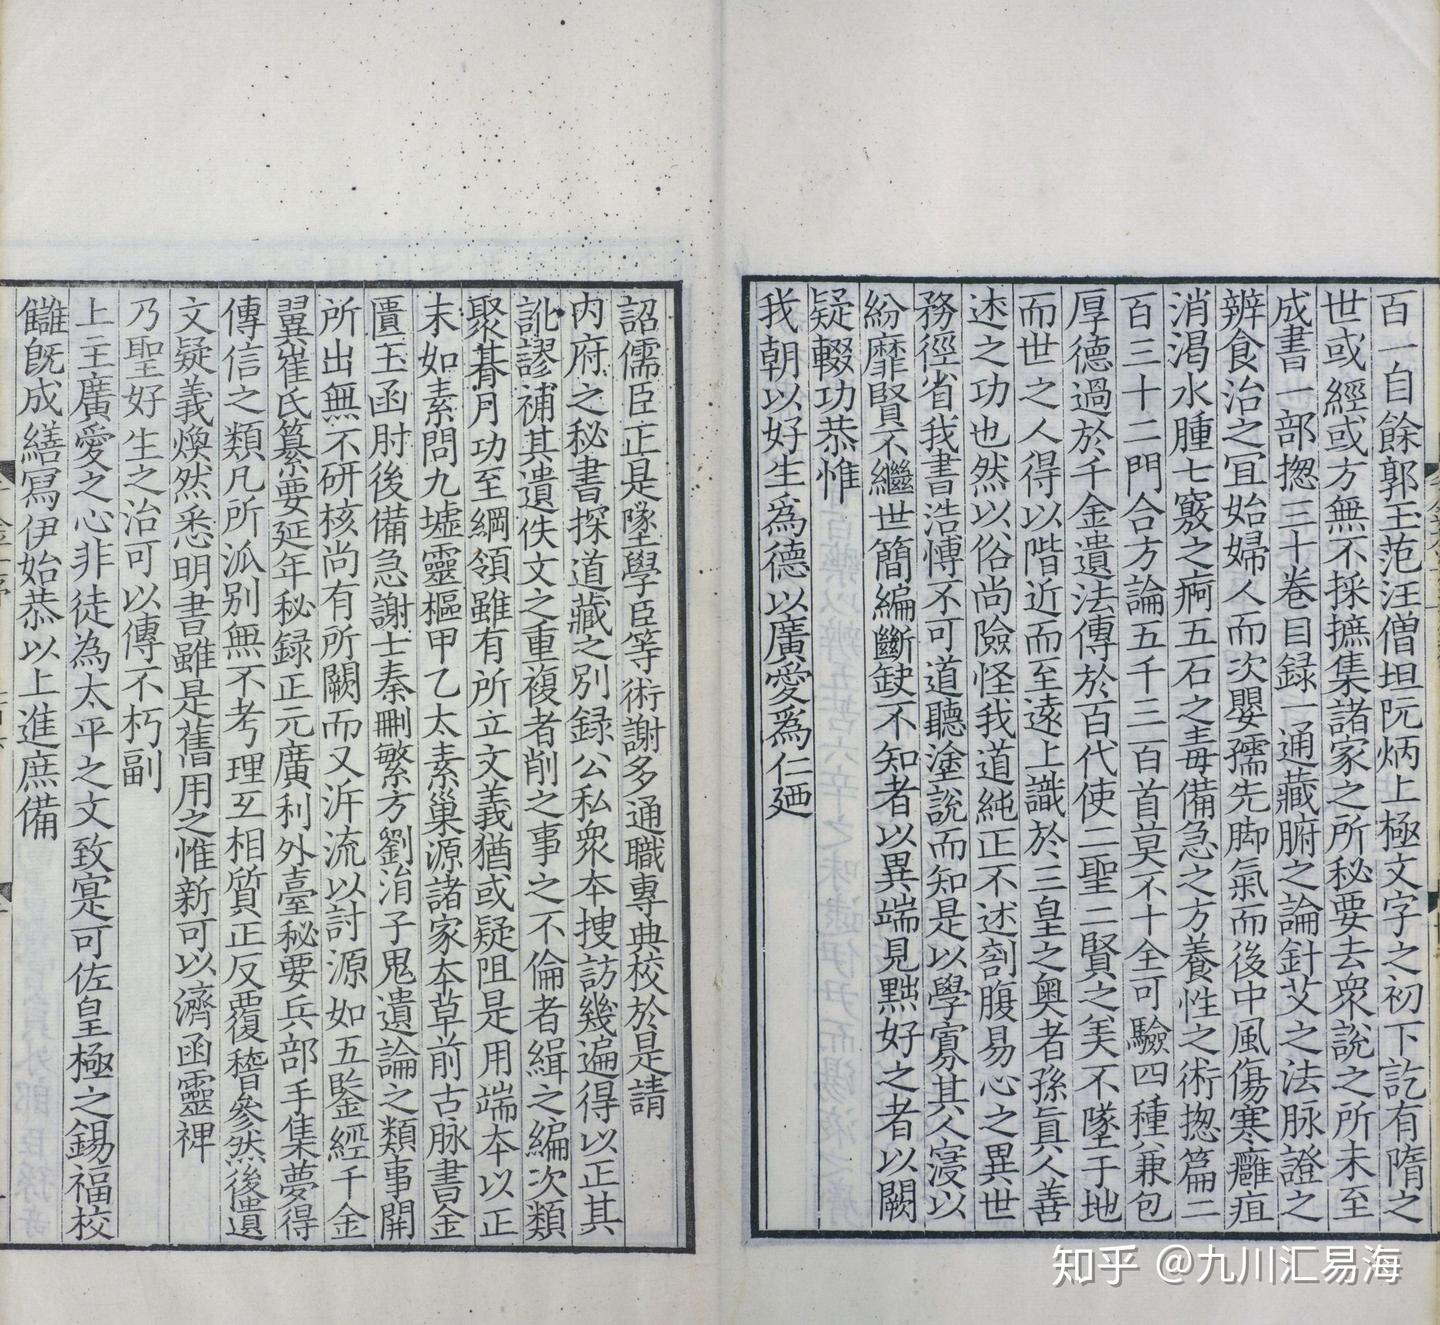 百一自餘郭玉范汪僧坦阮炳上極文字之初下訖有隋之
世或經或方無不採摭集諸家之所秘要去衆說之所未至
成書一部揔三十卷目録一通藏腑之論針艾之法脉證之
辨食治之冝始婦人而次嬰孺先脚氣而後中風傷寒癰疽
消渴水腫七竅之痾五石之毒備急之方養性之術揔篇二
百三十二門合方論五千三百首莫不十全可驗四種兼包
厚德過於千金遺法傳於百代使二聖二賢之美不墜于地
而世之人得以階近而至遠上識於三皇之奥者孫真人善
述之功也然以俗尚險怪我道純正不述刳腹易心之異世
務徑省我書浩愽不可道聽塗說而知是以學寡其人寖以
紛靡賢不繼世簡編斷缺不知者以異端見黜好之者以闕
疑輟功恭惟
我朝以好生爲德以廣愛爲仁廼
詔儒臣正是墜學臣等術謝多通職專典校於是請
内府之秘書探道藏之别録公私衆本搜訪幾遍得以正其
訛謬補其遺佚文之重複者削之事之不倫者緝之編次類
聚朞月功至綱領雖有所立文義猶或疑阻是用端本以正
末如素問九墟靈樞甲乙太素巢源諸家本草前古脉書金
匱玉函肘後備急謝士秦刪繁方劉涓子鬼遺論之類事關
所出無不研核尚有所闕而又泝流以討源如五鑒經千金
翼崔氏纂要延年秘録正元廣利外臺秘要兵部手集夢得
傳信之類凡所派别無不考理互相質正反覆稽參然後遺
文疑義煥然悉明書雖是舊用之惟新可以濟函靈禆
乃聖好生之治可以傳不朽副
上主廣愛之心非徒為太平之文致寔可佐皇極之錫福校
讎既成繕寫伊始恭以上進庶備
知乎 @九川汇易海